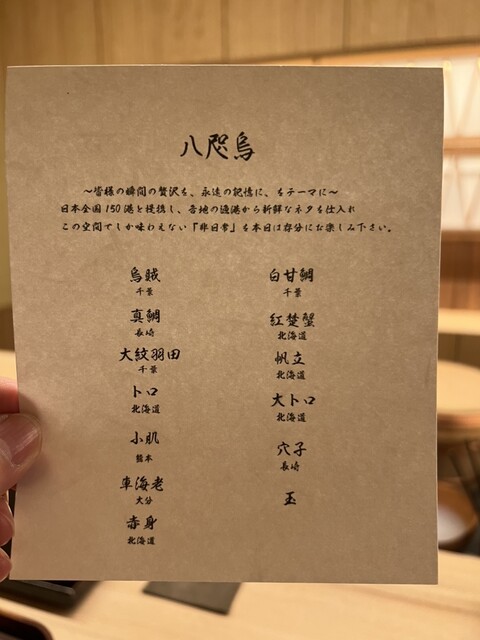 八咫烏
～皆様の瞬間の贅沢を、永遠の記憶に、をテーマに～
日本全国150港と提携し、各地の漁港から新鮮なネタを仕入れ
この空間でしか味わえない「非日常」を本日は存分にお楽しみ下さい。
烏賊
千葉
真鯛
長崎
大紋羽田
千葉
トロ
北海道
小肌
熊本
車海老
大分
赤身
北海道
白甘鯛
千葉
紅楚蟹
北海道
帆立
北海道
大トロ
北海道
穴子
長崎
玉